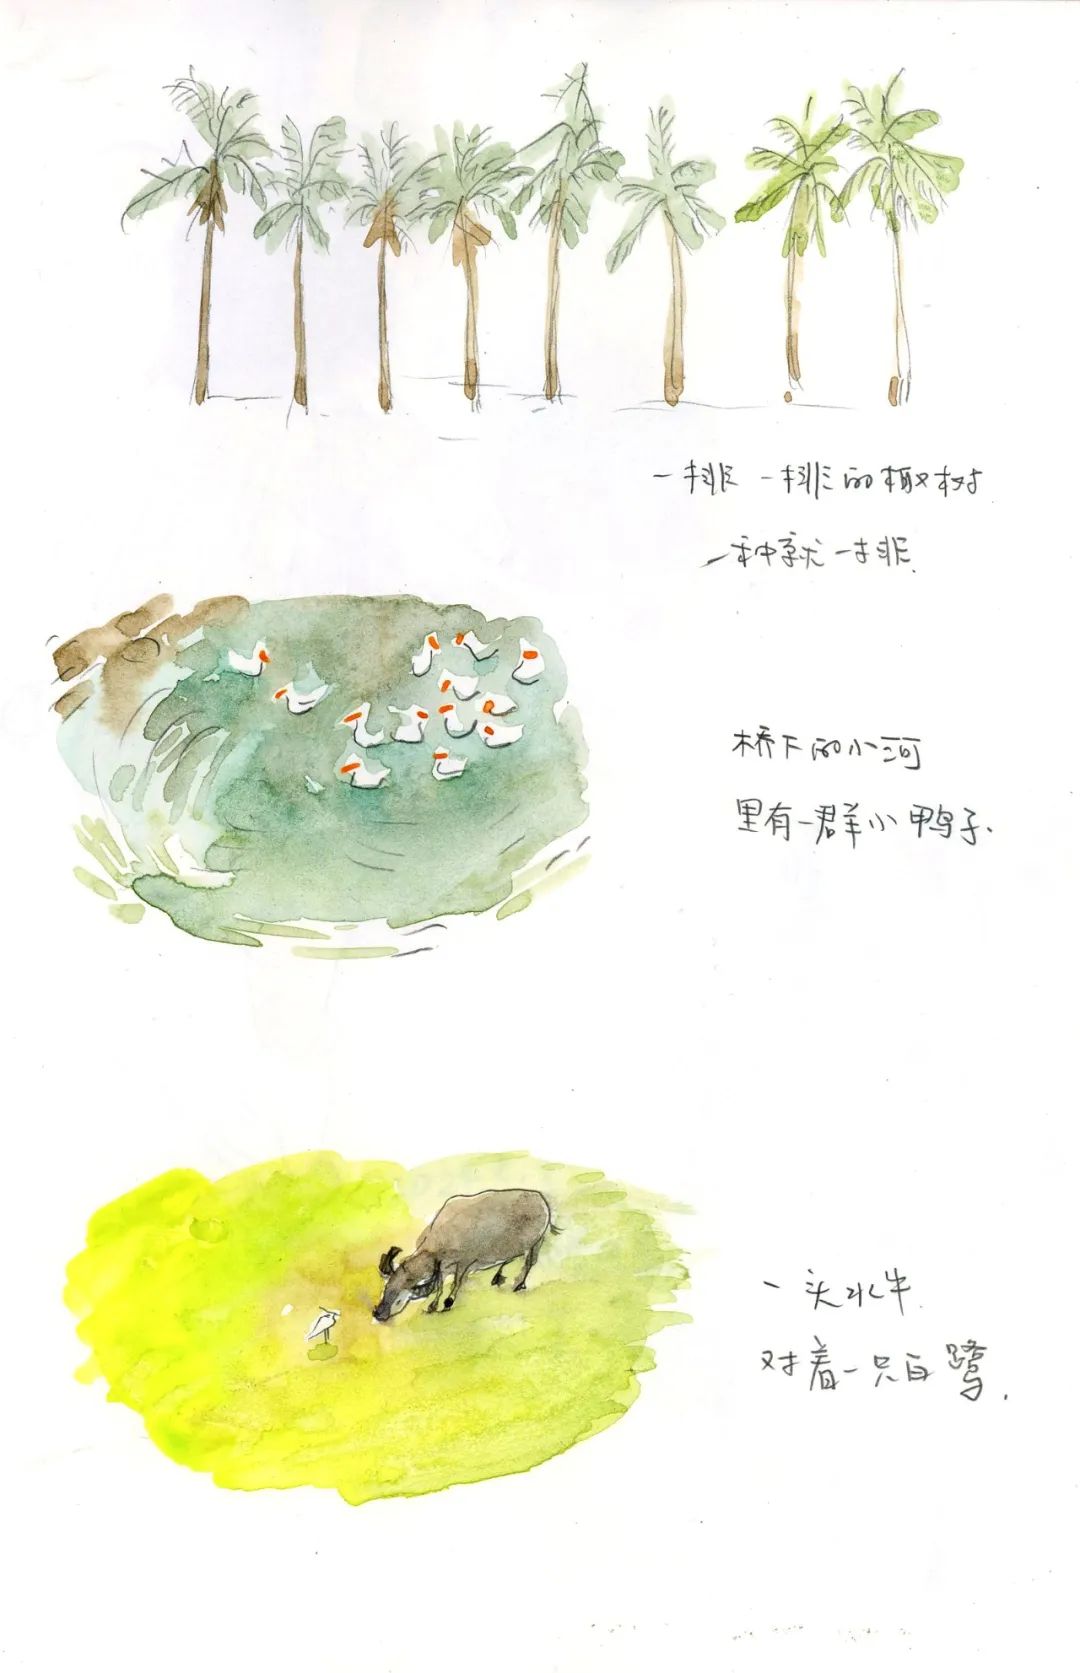 一排一排的椰树
一种就一排
桥下的小河
里有一群小鸭子.
一头水牛
对着一只白鹭.